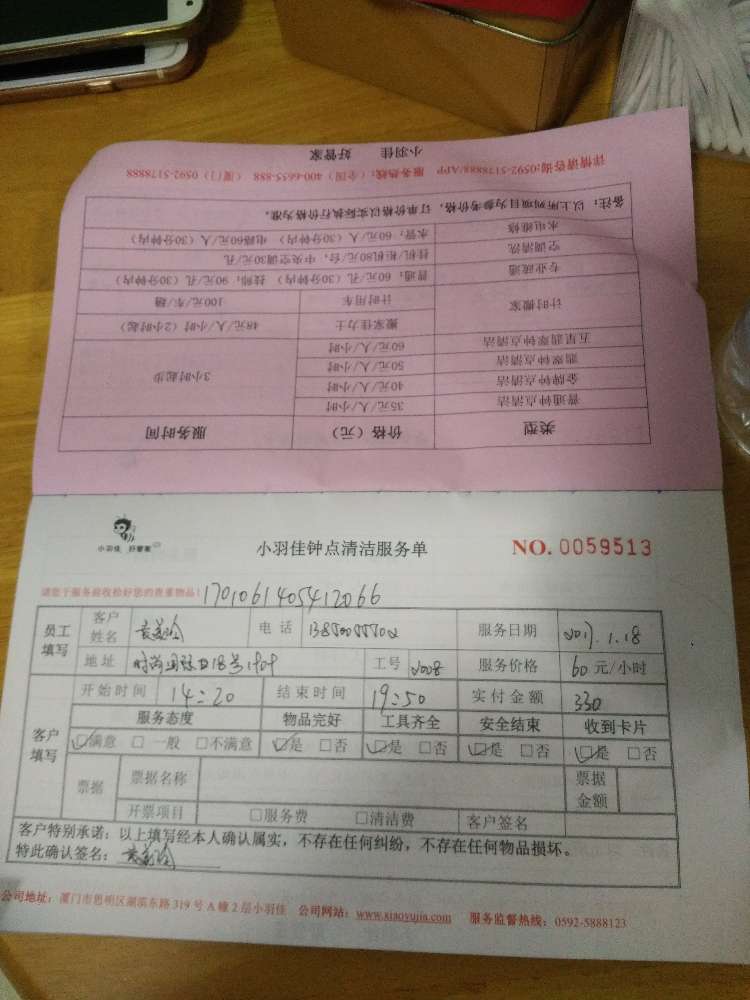 小羽佳 好管家
详情请咨询:0592-5178888/APP 服务热线：(全国) 400-6655-888 (厦门) 0592-5178888
类型 价格（元） 服务时间
普通钟点清洁 35元/人/小时 3小时起步
金牌钟点清洁 40元/人/小时
翡翠钟点清洁 50元/人/小时
五星翡翠钟点清洁 60元/人/小时
计时搬家 搬家佳力士 48元/人/小时（2小时起）
计时用车 100元/车/趟
专业疏通 普通：60元/孔（30分钟内） 技师：90元/孔（30分钟内）
空调清洗 挂机/柜机80元/台，中央空调30元/孔
水电维修 水管：60元/人（30分钟内） 电路60元/人（30分钟内）
备注：以上所列项目为参考价格，订单价格以实际执行价格为准。
小羽佳 好管家
小羽佳钟点清洁服务单 NO. 0059513
请您于服务前收捡好您的贵重物品！
1701061405412066
员工填写 客户姓名 电话 服务日期 2017.1.18
地址 工号 服务价格 60元/小时
客户填写 开始时间 14:20 结束时间 19:50 实付金额 330
服务态度 物品完好 工具齐全 安全结束 收到卡片
☑满意 □一般 □不满意 ☑是 □否 ☑是 □否 ☑是 □否 ☑是 □否
票据 票据名称 票据金额
开票项目 □服务费 □清洁费 客户签名
客户特别承诺：以上填写经本人确认属实，不存在任何纠纷，不存在任何物品损坏。
特此确认签名：
公司地址：厦门市思明区湖滨东路319号A幢2层小羽佳 公司网站：www.xiaoyujia.com 服务监督热线：0592-5888123